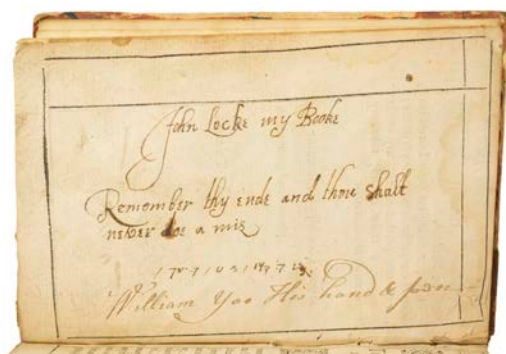 John Locke my Booke
Remember thy ende and thou shalt
never doe a mis
William Yoo His hand & pen